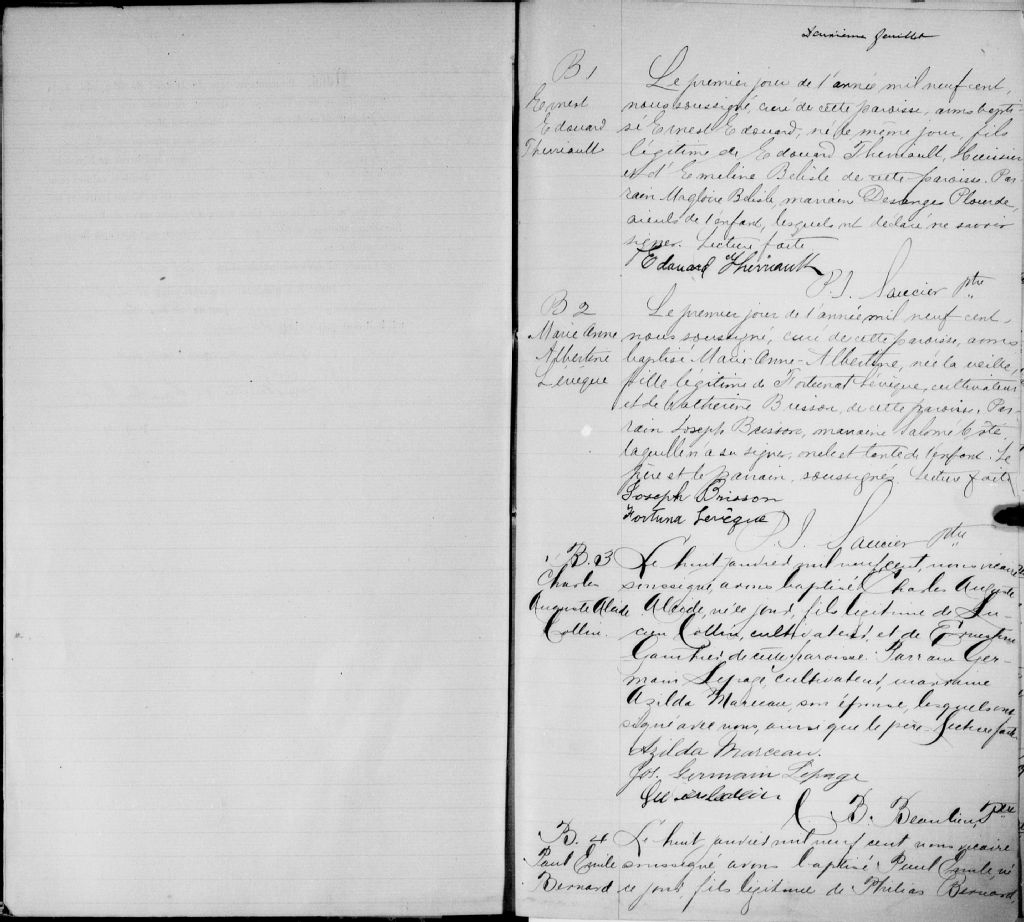 Deuxième feuillet
B 1
Ernest
Edouard
Therriault
Le premier jour de l'année mil neuf cent,
nous soussigné, curé de cette paroisse, avons bapti
sé Ernest Edouard, né le même jour, fils
légitime de Edouard Therriault, Huissier
et d'Emeline Belisle de cette paroisse. Par
rain Magloire Belisle, marraine Desanges Plourde,
aieuls de l'enfant, lesquels ont déclaré ne savoir
signer. Lecture faite
Edouard Therriault
P. J. Saucier ptre
B 2
Marie Anne
Albertine
Levêque
Le premier jour de l'année mil neuf cent,
nous soussigné, curé de cette paroisse, avons
baptisé Marie-Anne-Albertine, née la veille,
fille légitime de Fortunat Lévêque, cultivateur
et de Catherine Brisson, de cette paroisse. Par
rain Joseph Brisson, marraine Salomé Côté,
laquelle n'a su signer, oncle et tante de l'enfant. Le
père et le parrain, soussignés. Lecture faite
Joseph Brisson
Fortuna Levêque
P. J. Saucier ptre
B. 3
Charles
Auguste Alcide
Collin.
Le huit janvier mil neuf cent, nous vicaire
soussigné avons baptisé Charles Auguste
Alcide, né ce jour, fils légitime de Lu
cien Collin, cultivateur, et de Ernestine
Gauthier de cette paroisse. Parrain Ger-
main Lepage, cultivateur, marraine
Azilda Marceau, son épouse, lesquels ont
signé avec nous, ainsi que le père. Lecture faite
Azilda Marceau.
Jos. Germain Lepage
C. B. Beaulieu, Ptre
B. 4
Paul Emile
Bernard
Le huit janvier mil neuf cent nous vicaire
soussigné avons baptisé Paul Emile, né
ce jour, fils légitime de Philias Bernard